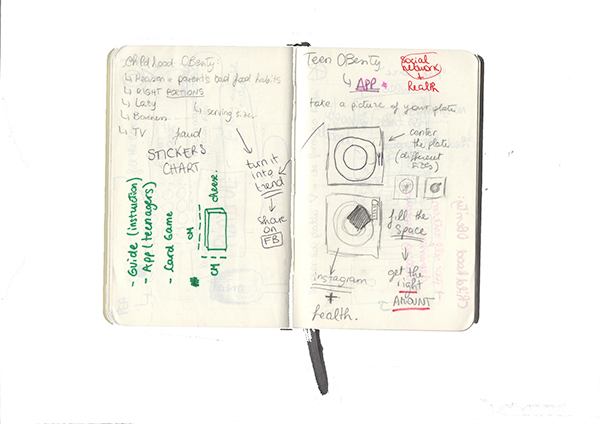 Childhood OBesity
↳ Reason = parents bad food habits
↳ RIGHT PORTIONS
↳ Lazy
↳ serving sizes
↳ TV
STICKERS
CHART
- Guide (instruction)
- App (teenagers)
- Card Game
cheese.
CM
CM
turn it
into
trend
share
on
FB
Teen OBesity
↳ APP
Social
network
+
Health
take a picture of your plate
center
the plate
(different
sizes)
fill the
space
get the
right
AMOUNT
instagram
+
health.